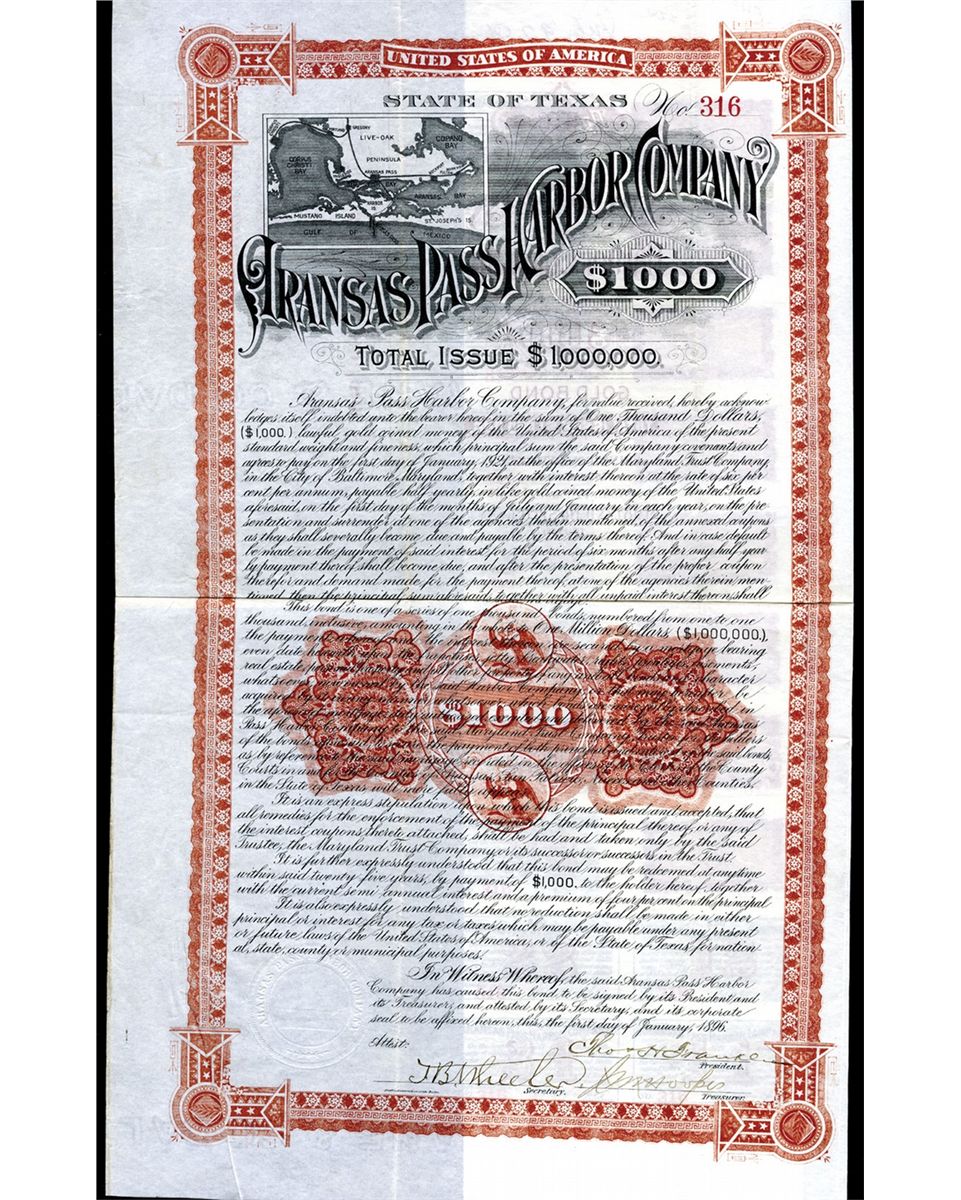 UNITED STATES OF AMERICA
STATE OF TEXAS No. 316
GREGORY
LIVE-OAK
COPANO BAY
CORPUS CHRISTI BAY
PENINSULA
ARANSAS PASS
BAY
HARBOR IS.
ARANSAS BAY
MUSTANG ISLAND
ST. JOSEPH'S IS.
GULF OF MEXICO
ARANSAS PASS HARBOR COMPANY
$1000
TOTAL ISSUE $1,000,000.
Aransas Pass Harbor Company, for value received, hereby acknow
ledges itself indebted unto the bearer hereof in the sum of One Thousand Dollars,
($1,000.) lawful gold coined money of the United States of America of the present
standard weight and fineness, which principal sum the said Company covenants and
agrees to pay on the first day of January, 1921, at the office of the Maryland Trust Company,
in the City of Baltimore, Maryland, together with interest thereon at the rate of six per
cent per annum, payable half yearly, in like gold coined money of the United States
aforesaid, on the first day of the months of July and January in each year, on the pre
sentation and surrender at one of the agencies therein mentioned, of the annexed coupons
as they shall severally become due and payable by the terms thereof. And in case default
be made in the payment of said interest for the period of six months after any half year
ly payment thereof shall become due, and after the presentation of the proper coupon
therefor and demand made for the payment thereof, at one of the agencies therein men
tioned, then the principal sum aforesaid, together with all unpaid interest thereon, shall
This bond is one of a series of one thousand bonds, numbered from one to one
thousand, inclusive, amounting in the Million Dollars ($1,000,000.),
the payment mortgage bearing
even date herewith
real estate
whatsoever character
acquired be
in
the Aransas
Pass Harbor Company
of the bonds the payment of both principal and said bonds,
as by reference recorded in the County
Courts in and counties,
in the State of Texas will more
$1000
It is an express stipulation upon which this bond is issued and accepted, that
all remedies for the enforcement of the payment of the principal thereof, or any of
the interest coupons thereto attached, shall be had and taken only by the said
Trustee, the Maryland Trust Company or its successor or successors in the Trust.
It is further expressly understood that this bond may be redeemed at any time
within said twenty five years, by payment of $1,000. to the holder hereof, together
with the current semi annual interest and a premium of four per cent on the principal
It is also expressly understood that no reduction shall be made in either
principal or interest for any tax or taxes which may be payable under any present
or future laws of the United States of America, or of the State of Texas, for nation
al, state, county or municipal purposes.
In Witness Whereof, the said Aransas Pass Harbor
Company has caused this bond to be signed by its President and
its Treasurer, and attested by its Secretary, and its corporate
seal to be affixed hereon, this, the first day of January, 1896.
Attest:
President.
T B Wheeler
Secretary.
Treasurer.